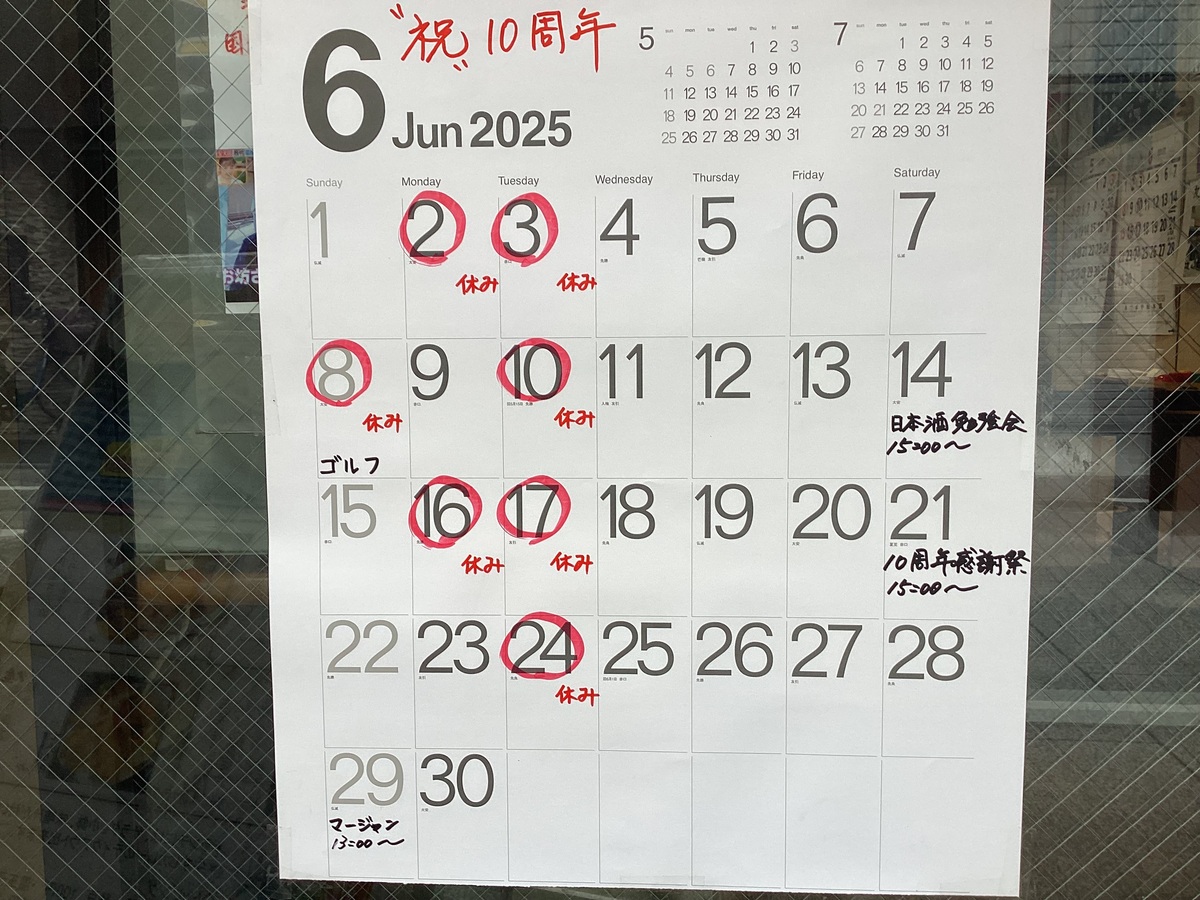 "祝" 10周年
6 Jun 2025
5
sun mon tue wed thu fri sat
1 2 3
4 5 6 7 8 9 10
11 12 13 14 15 16 17
18 19 20 21 22 23 24
25 26 27 28 29 30 31
7
sun mon tue wed thu fri sat
1 2 3 4 5
6 7 8 9 10 11 12
13 14 15 16 17 18 19
20 21 22 23 24 25 26
27 28 29 30 31
Sunday Monday Tuesday Wednesday Thursday Friday Saturday
1 2 3 4 5 6 7
休み 休み
8 9 10 11 12 13 14
休み 休み 日本酒勉強会
15:00〜
ゴルフ
15 16 17 18 19 20 21
休み 休み 10周年感謝祭
15:00〜
22 23 24 25 26 27 28
休み
29 30
マージャン
13:00〜
お坊さ